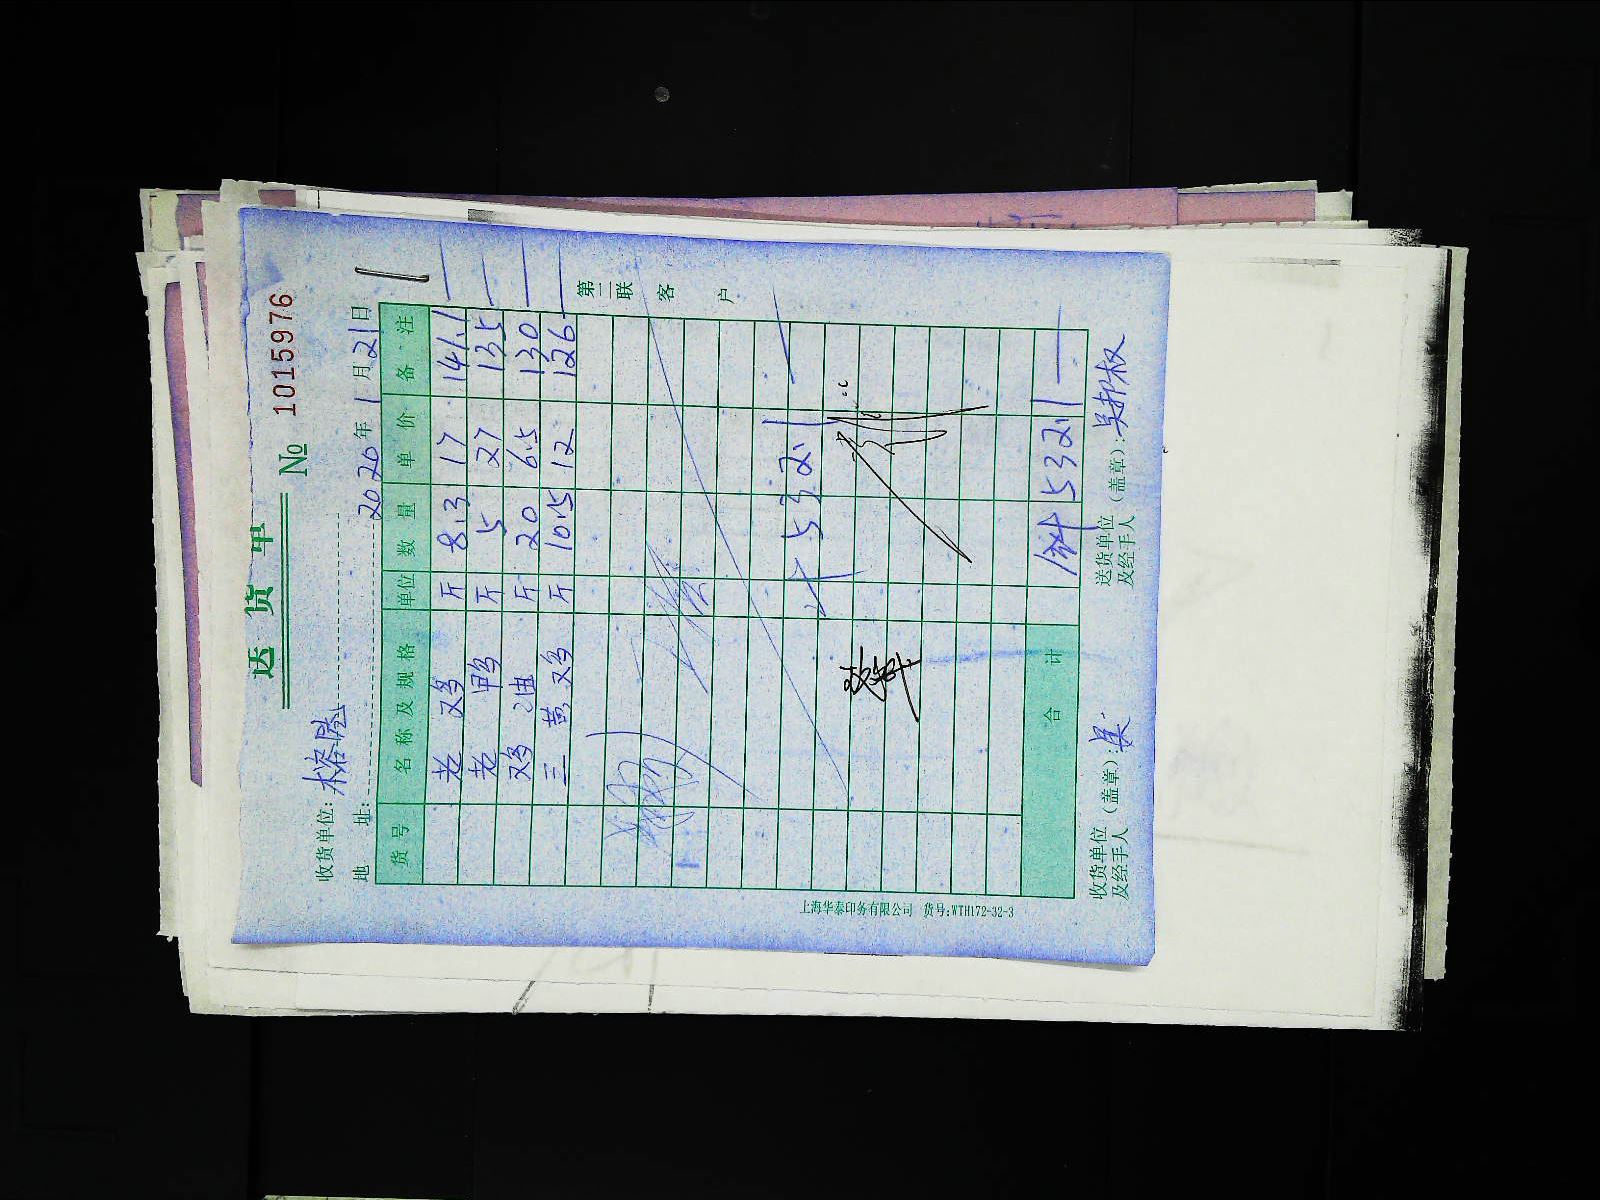 送货单
№ 1015976
收货单位: 榕港
地 址: 2020年1月21日
货号 名称及规格 单位 数量 单价 备注
老鸡 斤 8.3 17 141.1
老鸭 斤 5 27 135
鸡油 斤 20 6.5 130
三黄鸡 斤 10.5 12 126
第二联 客户
532.1
合计 532.1
收货单位及经手人(盖章): 吴
送货单位及经手人(盖章): 吴邦权
上海华泰印务有限公司 货号:WTH172-32-3